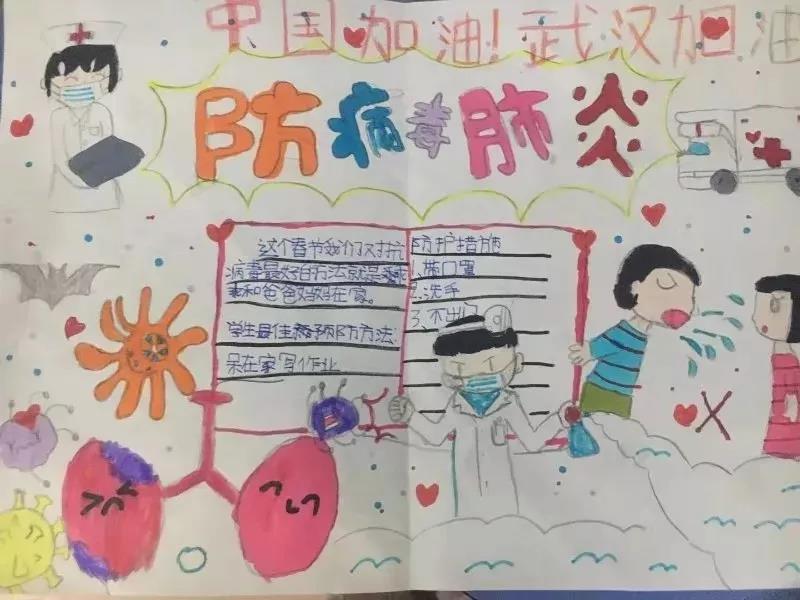 中国加油!武汉加油
防病毒肺炎
这个春节我们对抗
病毒最好的方法就是乖
乖和爸爸妈妈在家。
学生最佳预防方法:
呆在家写作业
防护措施
1.戴口罩
2.洗手
3.不出门